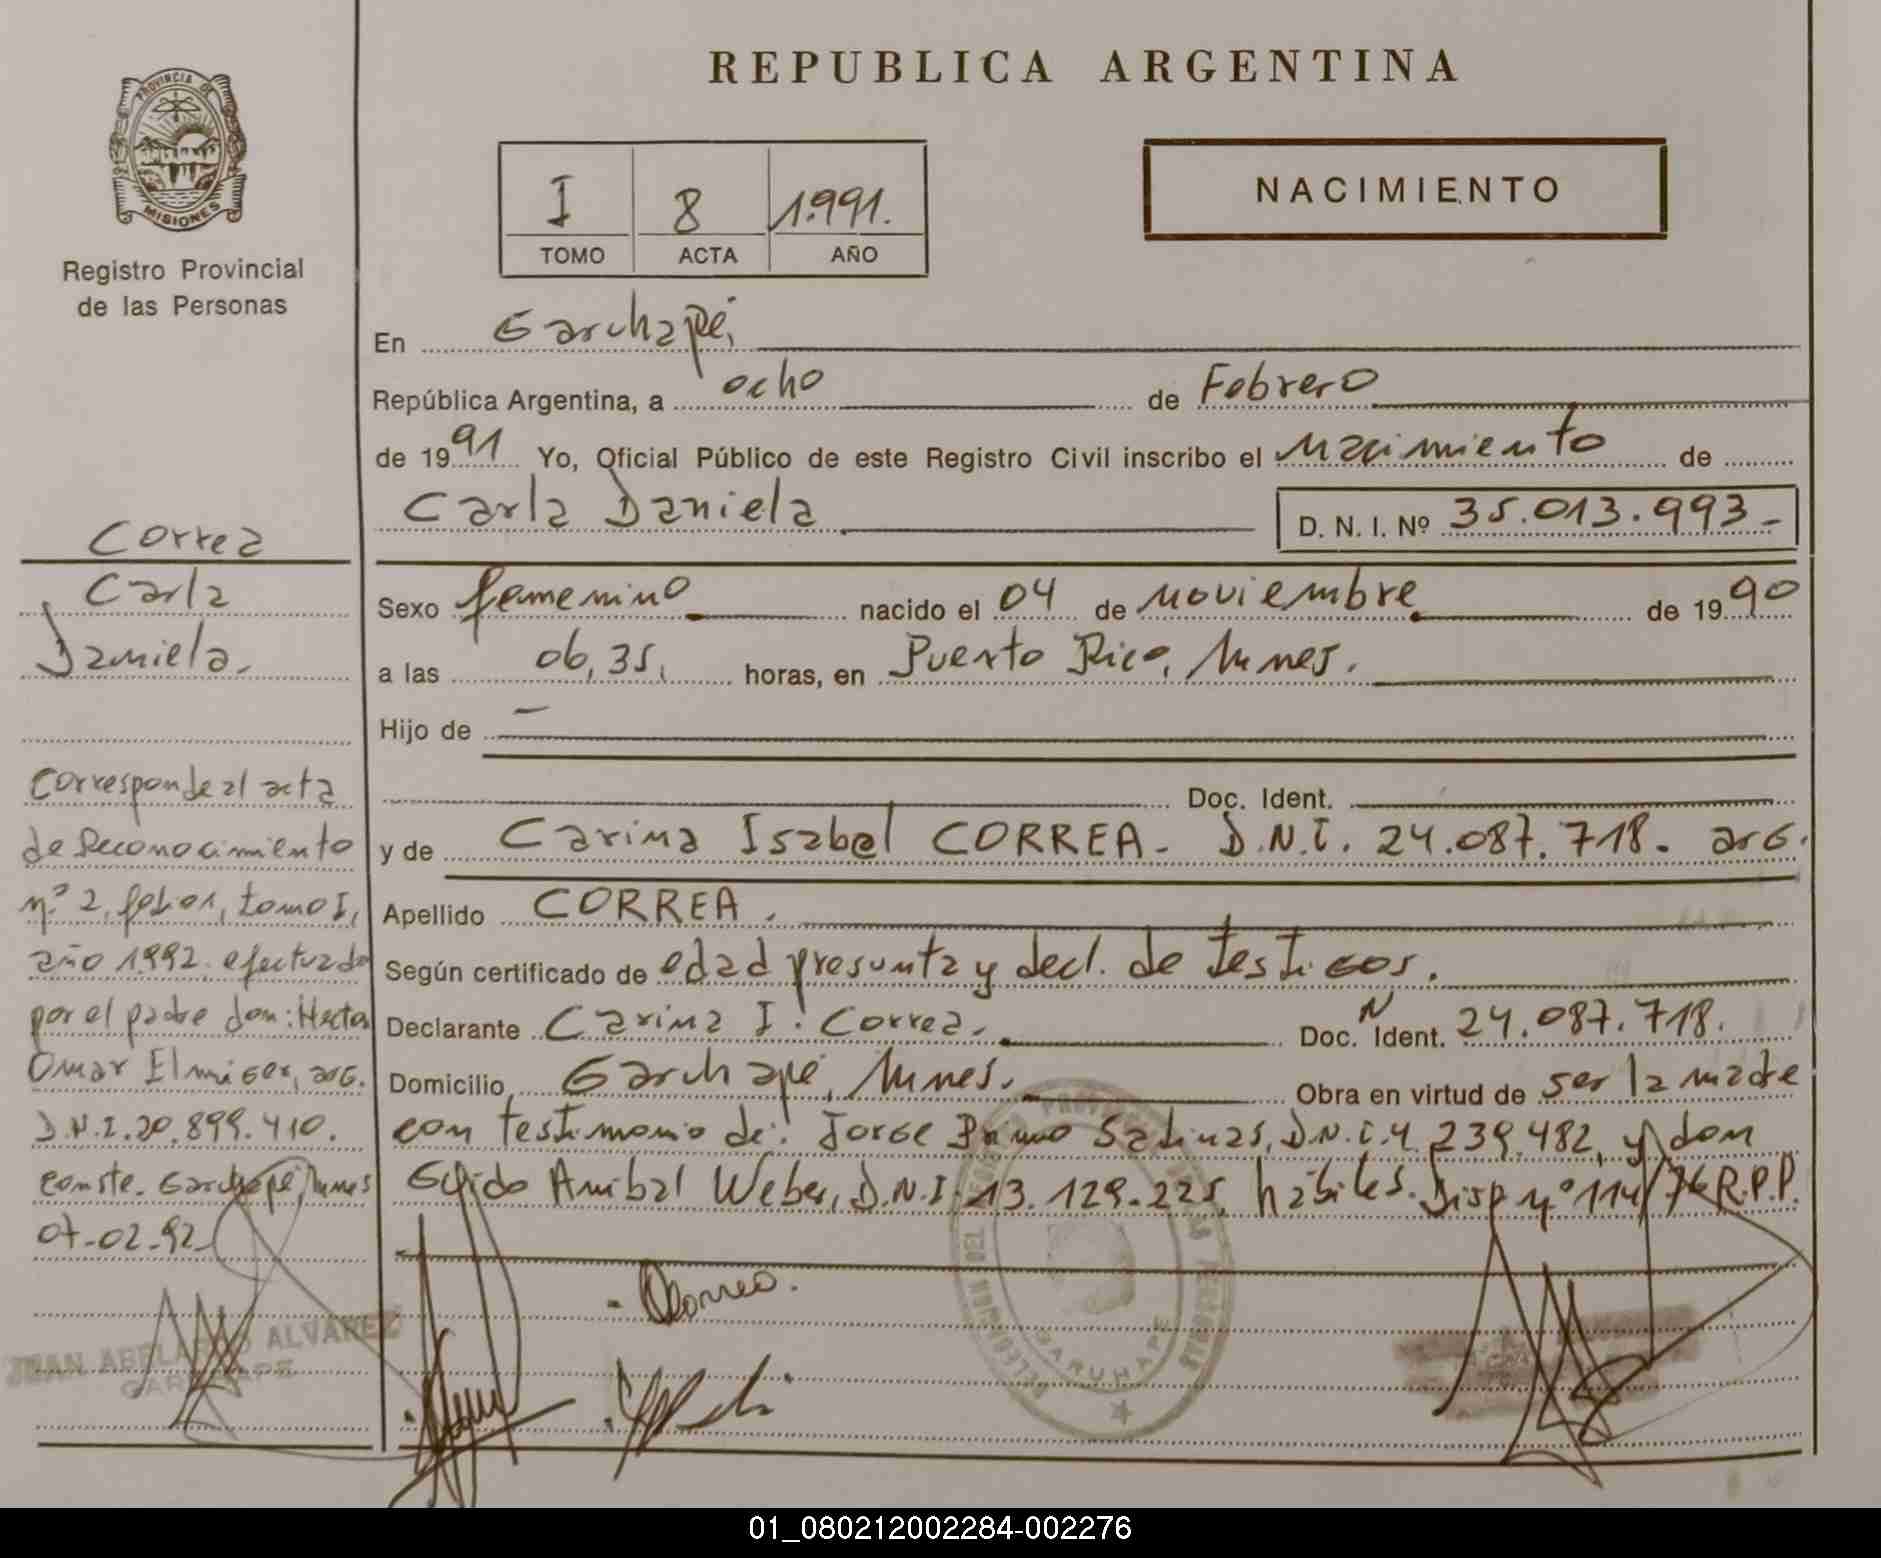 REPUBLICA ARGENTINA
PROVINCIA DE
MISIONES
Registro Provincial
de las Personas
I 8 1.991.
TOMO ACTA AÑO
NACIMIENTO
En Garuhapé,
República Argentina, a ocho de Febrero
de 1991 Yo, Oficial Público de este Registro Civil inscribo el Nacimiento de
Carla Daniela D. N. I. Nº 35.013.993-
Sexo femenino nacido el 04 de noviembre de 1990
a las 06,35, horas, en Puerto Rico, Mnes.
Hijo de —
Doc. Ident.
y de Carina Isabel CORREA- D.N.I. 24.087.718. arG.
Apellido CORREA.
Según certificado de edad presunta y decl. de testiGos.
Declarante Carina I. Correa. Doc. N Ident. 24.087.718.
Domicilio Garuhapé, Mnes. Obra en virtud de ser la madre
con testimonio de: Jorge Salinas, D.N.I. 4.239.482, y don
Egido Anibal Weber, D.N.I. 13.129.225, hábiles. Disp nº 114/76 R.P.P.
Correa
Carla
Daniela.
Corresponde al acta
de Reconocimiento
nº 2, folio 1, tomo I,
año 1.992. efectuado
por el padre don: Hector
Omar Elmiger, arG.
D.N.I. 20.899.410.
conste. Garuhapé, Mnes
07-02-92
JUAN ABELARDO ALVAREZ
GARUHAPE
Correa.
DELEGACION DEL REGISTRO PROVINCIAL DE LAS PERSONAS
GARUHAPE
01_080212002284-002276